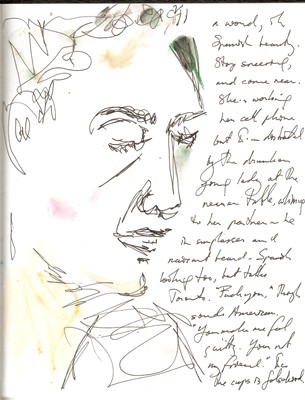 a word, oh
Spanish beauty.
Stop sneering,
and come near.
She is working
her cell phone
but I'm distracted
by the drunken
young lady at the
near Table, whining
to her partner – he
in sunglasses and
nascent beard – Spanish
looking too, but talks
Toronto. "Fuck you," though
sounds American.
"You make me feel
guilty. You're not
my friend."
the cup is